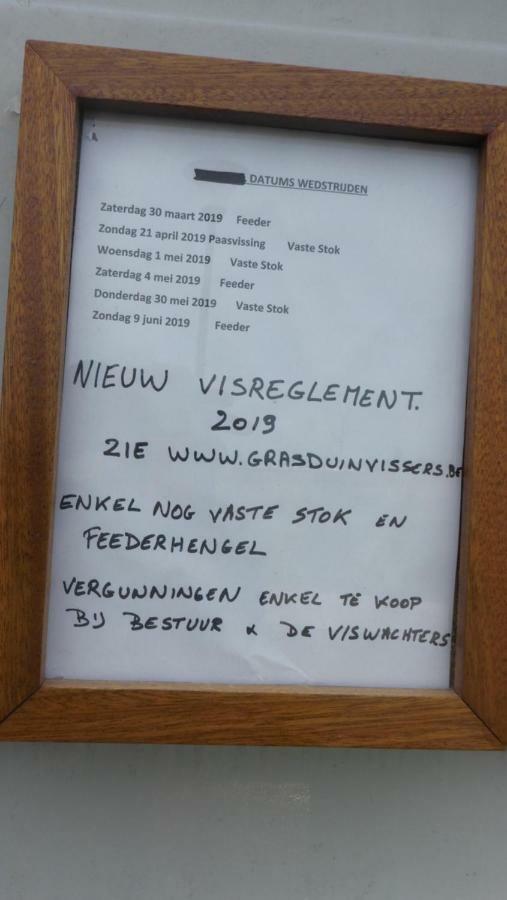 DATUMS WEDSTRIJDEN
Zaterdag 30 maart 2019 Feeder
Zondag 21 april 2019 Paasvissing Vaste Stok
Woensdag 1 mei 2019 Vaste Stok
Zaterdag 4 mei 2019 Feeder
Donderdag 30 mei 2019 Vaste Stok
Zondag 9 juni 2019 Feeder
NIEUW VISREGLEMENT.
2019
ZIE WWW.GRASDUINVISSERS.BE
ENKEL NOG VASTE STOK EN
FEEDERHENGEL
VERGUNNINGEN ENKEL TE KOOP
BIJ BESTUUR & DE VISWACHTERS